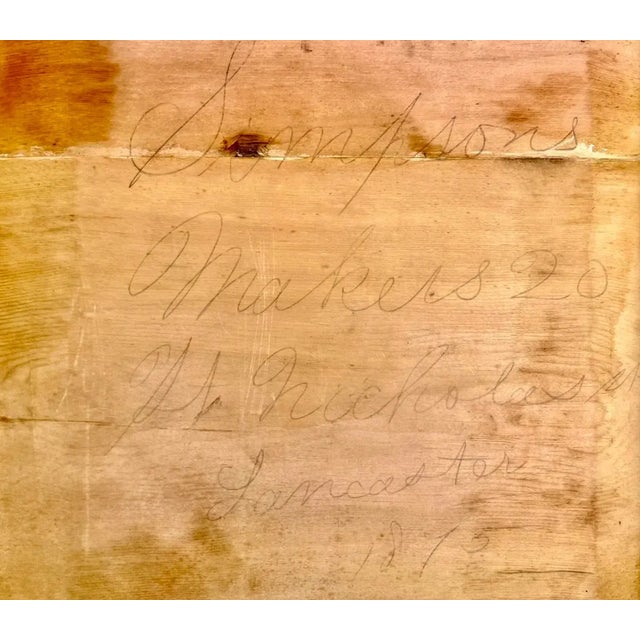 Simpsons
Makers 20
St Nicholas St
Lancaster
1875